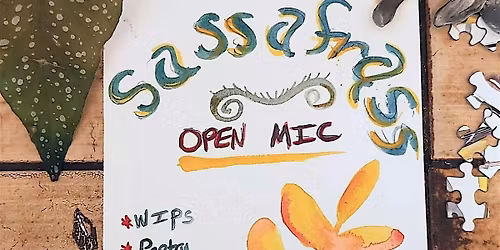 Sassafrass
OPEN MIC
*WIPS
*Poetry